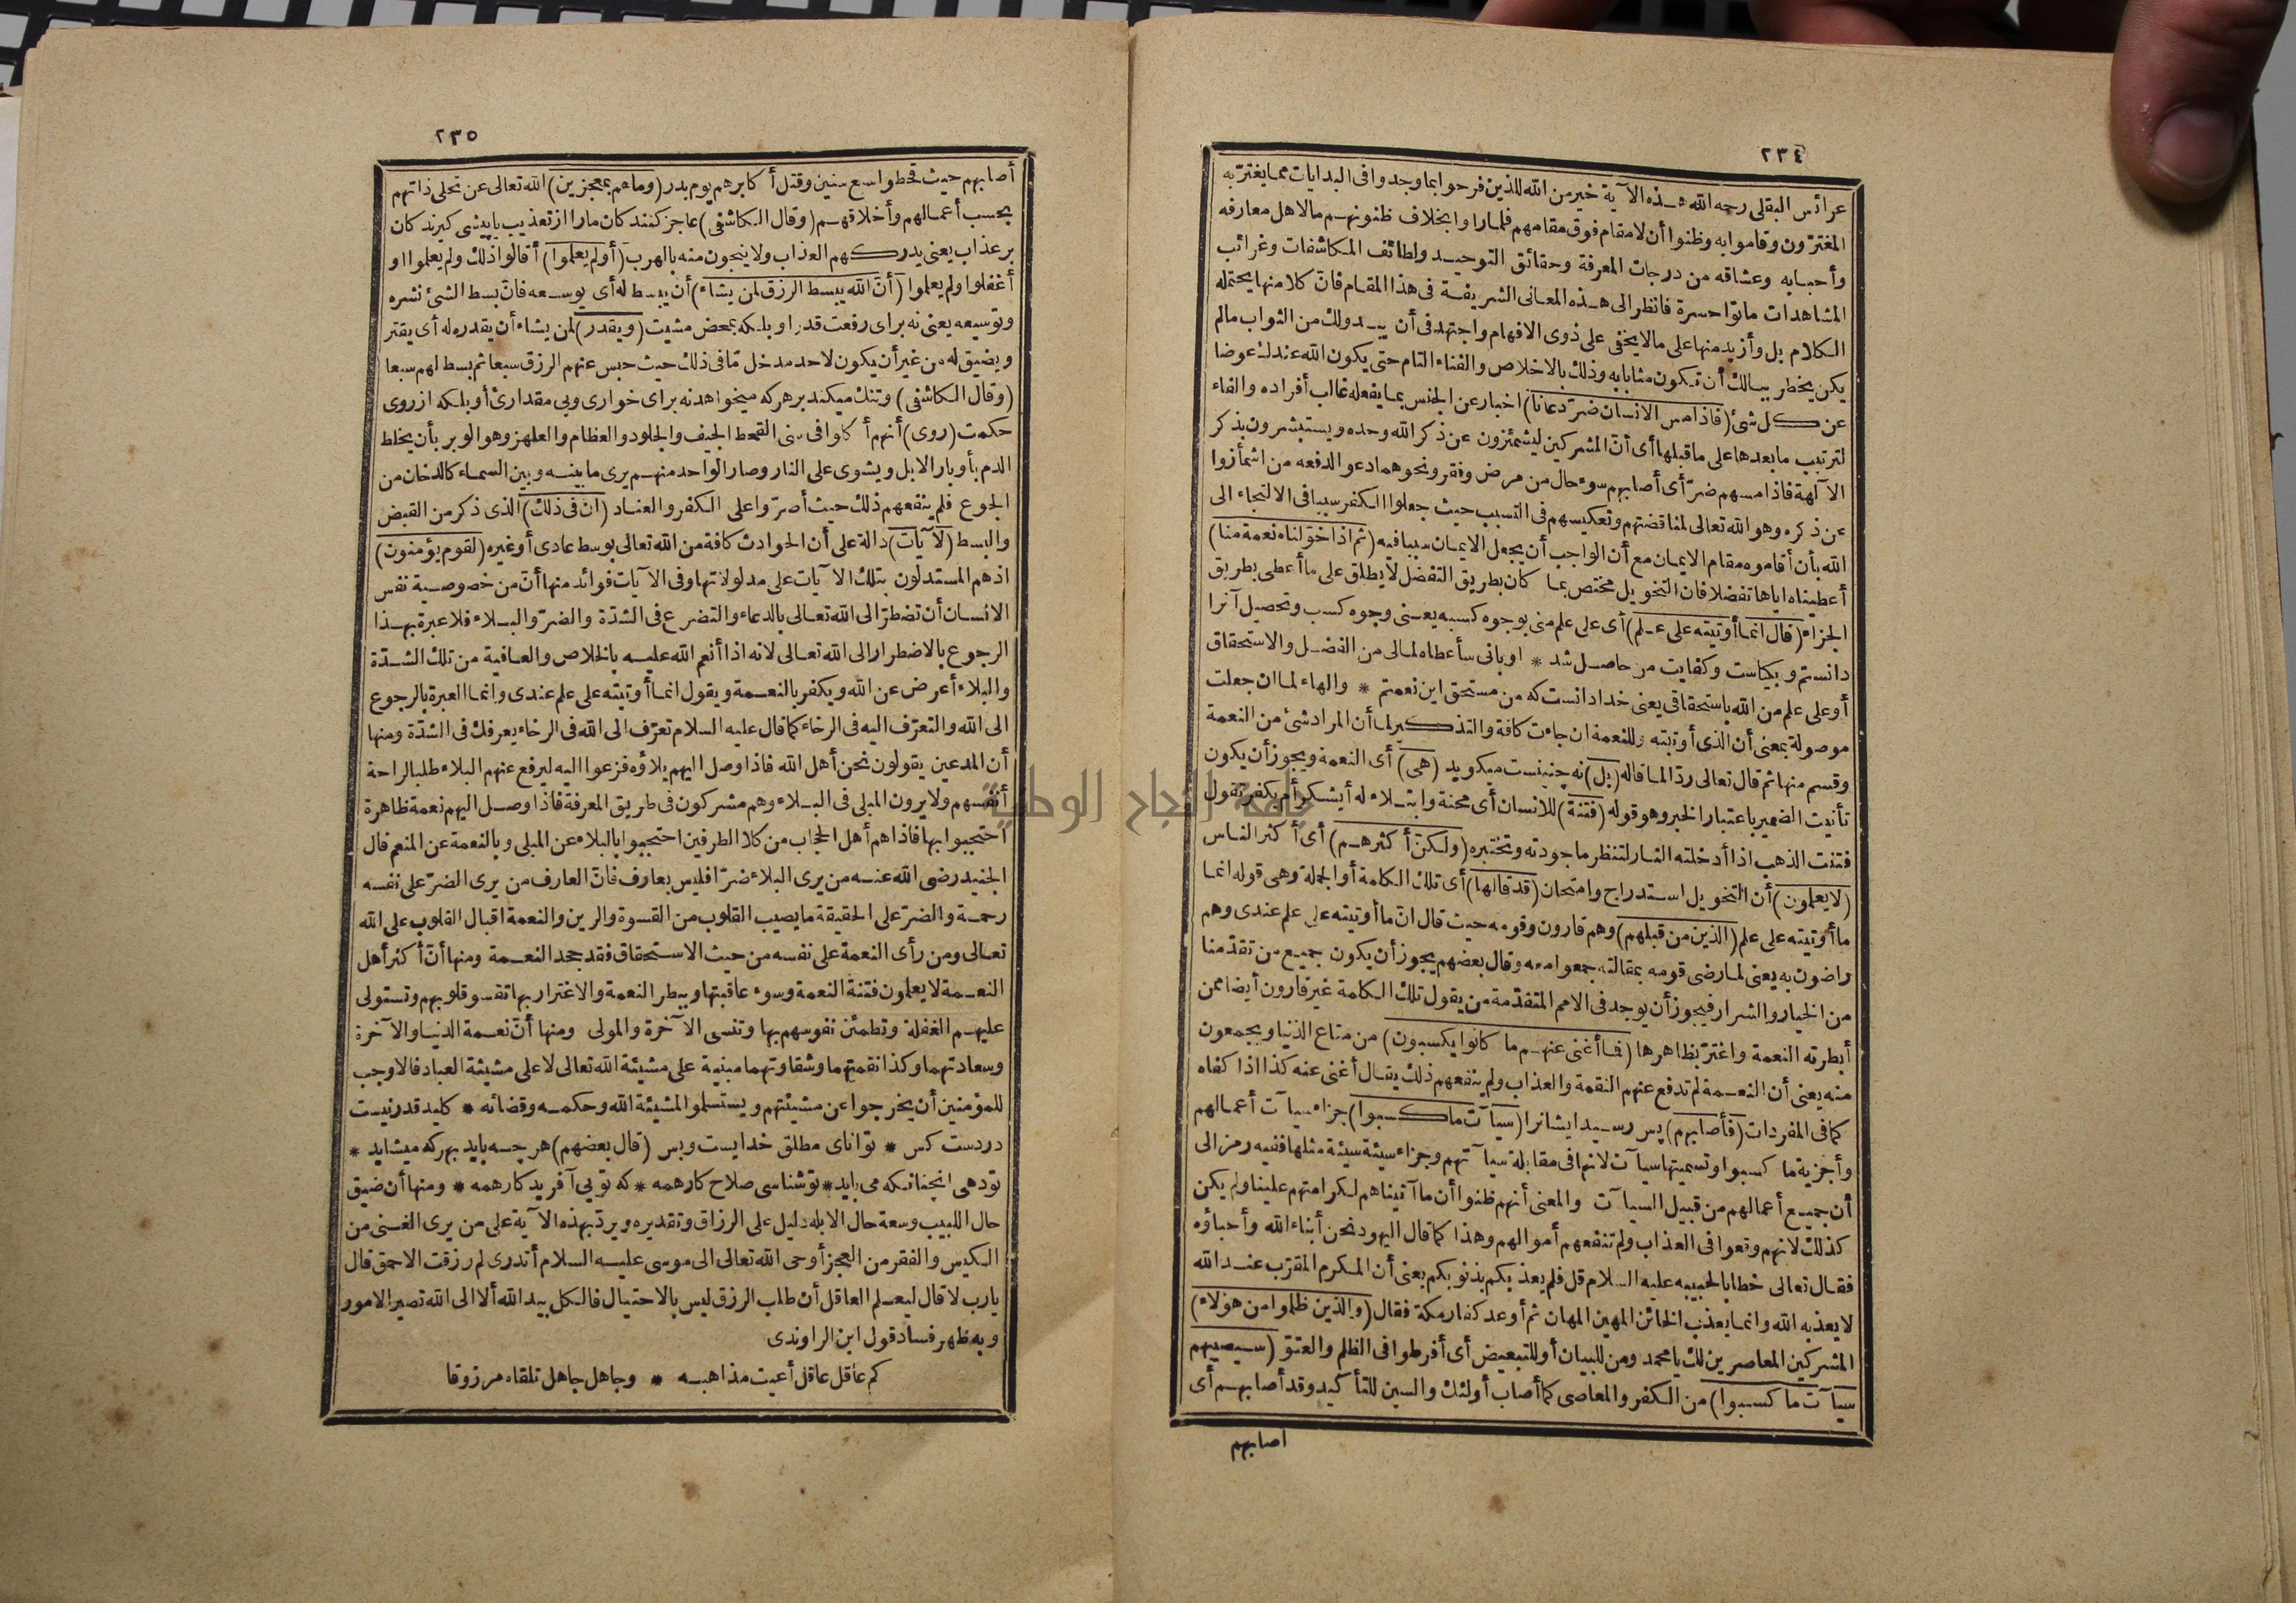 ٢٣٤
عرائس البقلى رحمه الله هذه الآية خير من الله للذين فرحوا بما وجدوا فى البدايات مما يغتر به
المغترون وقاموا به وظنوا أن لا مقام فوق مقامهم فلما راوا بخلاف ظنونهم ما لاهل معارفه
وأحبابه وعشاقه من درجات المعرفة وحقائق التوحيد ولطائف المكاشفات وغرائب
المشاهدات ماتوا حسرة فانظر الى هذه المعانى الشريفة فى هذا المقام فان كلا منها يحتمله
الكلام بل وأزيد منها على ما لا يخفى على ذوى الافهام واجتهد فى أن يبدو لك من الثواب ما لم
يكن يخطر ببالك أن تكون مثابا به وذلك بالاخلاص والفناء التام حتى يكون الله عندك عوضا
عن كل شئ (فاذا مس الانسان ضر دعانا) اخبار عن الجنس بما يفعله غالب أفراده والفاء
لترتيب ما بعدها على ما قبلها أى أن المشركين ليشمئزون عن ذكر الله وحده ويستبشرون بذكر
الآلهة فاذا مسهم ضر أى أصابهم سوء حال من مرض وفقر ونحوهما دعوا لدفعه من اشمأزوا
عن ذكره وهو الله تعالى لمناقضتهم وتعكيسهم فى التسبب حيث جعلوا الكفر سببا فى الالتجاء الى
الله بأن أقاموه مقام الايمان مع أن الواجب أن يجعل الايمان سببا فيه (ثم اذا خولناه نعمة منا)
أعطيناه اياها تفضلا فان التخويل مختص بما كان بطريق التفضل لا يطلق على ما أعطى بطريق
الجزاء (قال انما أوتيته على علم) أى على علم منى بوجوه كسبه يعنى وجوه كسب وتحصيل آنرا
دانستم وبكياست وكفايت من حاصل شد * او بانى سأعطاه لمالى من الفضل والاستحقاق
أو على علم من الله باستحقاقى يعنى خدا دانست كه من مستحق اين نعمتم * والهاء لما ان جعلت
موصولة بمعنى أن الذى أوتيته وللنعمة ان جاءت كافة والتذكير لما أن المراد شئ من النعمة
وقسم منها ثم قال تعالى ردا لما قاله (بل) نه چنينست ميكويد (هى) أى النعمة ويجوز أن يكون
تأنيث الضمير باعتبار الخبر وهو قوله (فتنة) للانسان أى محنة وابتلاء له أيشكر أم يكفر تقول
فتنت الذهب اذا أدخلته النار لتنظر ما جودته وتختبره (ولكن أكثرهم) أى أكثر الناس
(لا يعلمون) أن التخويل استدراج وامتحان (قد قالها) أى تلك الكلمة أو الجملة وهى قوله انما
ما أوتيته على علم (الذين من قبلهم) وهم قارون وقومه حيث قال ان ما أوتيته على علم عندى وهم
راضون به يعنى لما رضى قومه بمقالته جمعوا معه وقال بعضهم يجوز أن يكون جميع من تقدمنا
من الخيار والشرار فيجوز أن يوجد فى الامم المتقدمة من يقول تلك الكلمة غير قارون أيضا ممن
أبطرته النعمة واغتر بظاهرها (فما أغنى عنهم ما كانوا يكسبون) من متاع الدنيا ويجمعون
منه يعنى أن النعمة لم تدفع عنهم النقمة والعذاب ولم ينفعهم ذلك يقال أغنى عنه كذا اذا كفاه
كما فى المفردات (فأصابهم) پس رسيد ايشانرا (سيآت ما كسبوا) جزاء سيآت أعمالهم
وأجزية ما كسبوا وتسميتها سيآت لانها فى مقابلة سيآتهم وجزاء سيئة سيئة مثلها ففيه رمز الى
أن جميع أعمالهم من قبيل السيآت والمعنى أنهم ظنوا أن ما آتيناهم لكرامتهم علينا ولم يكن
كذلك لانهم وقعوا فى العذاب ولم تنفعهم أموالهم وهذا كما قال اليهود نحن أبناء الله وأحباؤه
فقال تعالى خطابا لحبيبه عليه السلام قل فلم يعذبكم بذنوبكم يعنى أن المكرم المقرب عند الله
لا يعذبه الله وانما يعذب الخائن المهين المهان ثم أوعد كفار مكة فقال (والذين ظلموا من هؤلاء)
المشركين المعاصرين لك يا محمد ومن للبيان أو للتبعيض أى أفرطوا فى الظلم والعتو (سيصيبهم
سيآت ما كسبوا) من الكفر والمعاصى كما أصاب أولئك والسين للتأكيد وقد أصابهم أى
اصابهم
٢٣٥
أصابهم حيث قحطوا سبع سنين وقتل أكابرهم يوم بدر (وما هم بمعجزين) الله تعالى عن تجلى ذاتهم
بحسب أعمالهم وأخلاقهم (وقال الكاشفى) عاجز كنند كان مارا از تعذيب يا پيشى كيرند كان
بر عذاب يعنى يدركهم العذاب ولا ينجون منه بالهرب (أولم يعلموا) أقالوا ذلك ولم يعلموا او
أغفلوا ولم يعلموا (أن الله يبسط الرزق لمن يشاء) أن يبسط له أى يوسعه فان بسط الشئ نشره
وتوسيعه يعنى نه براى رفعت قدر او بلكه بمحض مشيت (ويقدر) لمن يشاء أن يقدره له أى يقتر
ويضيق له من غير أن يكون لاحد مدخل ما فى ذلك حيث حبس عنهم الرزق سبعا ثم بسط لهم سبعا
(وقال الكاشفى) وتنك ميكند بر هر كه ميخواهد نه براى خوارى وبى مقدارئ أو بلكه از روى
حكمت (روى) أنهم أكلوا فى سنى القحط الجيف والجلود والعظام والعلهز وهو الوبر بأن يخلط
الدم بأوبار الابل ويشوى على النار وصار الواحد منهم يرى ما بينه وبين السماء كالدخان من
الجوع فلم ينفعهم ذلك حيث أصروا على الكفر والعناد (ان فى ذلك) الذى ذكر من القبض
والبسط (لآيات) دالة على أن الحوادث كافة من الله تعالى بوسط عادى أو غيره (لقوم يؤمنون)
اذ هم المستدلون بتلك الآيات على مدلولاتها وفى الآيات فوائد منها أن من خصوصية نفس
الانسان أن تضطر الى الله تعالى بالدعاء والتضرع فى الشدة والضر والبلاء فلا عبرة بهذا
الرجوع بالاضطرار الى الله تعالى لانه اذا أنعم الله عليه بالخلاص والعافية من تلك الشدة
والبلاء أعرض عن الله ويكفر بالنعمة ويقول انما أوتيته على علم عندى وانما العبرة بالرجوع
الى الله والتعرف اليه فى الرخاء كما قال عليه السلام تعرف الى الله فى الرخاء يعرفك فى الشدة ومنها
أن المدعين يقولون نحن أهل الله فاذا وصل اليهم بلاؤه فزعوا اليه ليرفع عنهم البلاء طلبا لراحة
أنفسهم ولا يرون المبلى فى البلاء وهم مشركون فى طريق المعرفة فاذا وصل اليهم نعمة ظاهرة
احتجبوا بها فاذا هم أهل الحجاب من كلا الطرفين احتجبوا بالبلاء عن المبلى وبالنعمة عن المنعم قال
الجنيد رضى الله عنه من يرى البلاء ضرا فليس بعارف فان العارف من يرى الضر على نفسه
رحمة والضر على الحقيقة ما يصيب القلوب من القسوة والرين والنعمة اقبال القلوب على الله
تعالى ومن رأى النعمة على نفسه من حيث الاستحقاق فقد جحد النعمة ومنها أن أكثر أهل
النعمة لا يعلمون فتنة النعمة وسوء عاقبتها وببطر النعمة والاغترار بها تقسو قلوبهم وتستولى
عليهم الغفلة وتطمئن نفوسهم بها وتنسى الآخرة والمولى ومنها أن نعمة الدنيا والآخرة
وسعادتهما وكذا نقمتهما وشقاوتهما مبنية على مشيئة الله تعالى لا على مشيئة العباد فالاوجب
للمؤمنين أن يخرجوا عن مشيئتهم ويستسلموا لمشيئة الله وحكمه وقضائه * كليد قدر نيست
در دست كس * تواناى مطلق خدايست وبس (قال بعضهم) هر چه بايد بهر كه ميشايد *
تو دهى آنچنانكه مى بايد * تو شناسى صلاح كار همه * كه تويى آفريد كار همه * ومنها أن ضيق
حال اللبيب وسعة حال الابله دليل على الرزاق وتقديره ويرد بهذه الآية على من يرى الغنى من
الكيس والفقر من العجز أوحى الله تعالى الى موسى عليه السلام أتدرى لم رزقت الاحمق قال
يا رب لا قال ليعلم العاقل أن طلب الرزق ليس بالاحتيال فالكل بيد الله ألا الى الله تصير الامور
وبه ظهر فساد قول ابن الراوندى
كم عاقل عاقل أعيت مذاهبه * وجاهل جاهل تلقاه مرزوقا
جامعة النجاح الوطنية